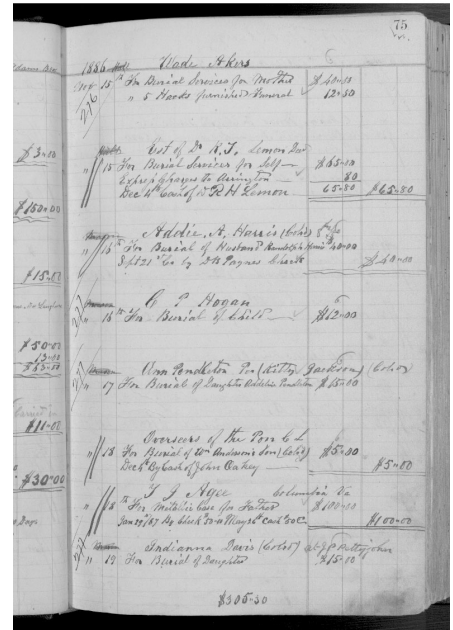 75
1886 Wade Akers
Nov 15th For Burial Services for Mother $40-00
" 5 Hacks furnished Funeral 12-50
276
Est of Dr R. T. Lemon Decd
" 15 For Burial Services for Self $65-00
Express Charges to Arrington 80
Dec 4th Cash of R H Lemon 65-80 $65-80
Addie A. Harris (Cold)
" 15th For Burial of Husband Randolph Harris $40-00
Sept 21st To by Dr Paynes Check $40-00
277
C P Hogan
" 16th For Burial of Child $12-00
277
Ann Pendleton Per (Kitty Jackson) (Cold)
" 17 For Burial of Daughter Pendleton $65-00
Overseers of the Poor C L
" 18 For Burial of Wm Anderson's Son (Cold) $5-00
Dec By Cash of John Oakey $5-00
T J Agee Columbia Va
" 18th For Metallic Case for Father $100-00
Jan 29th/87 By Check 50-00 May 26th Cash 50 $100-00
277
Indianna Davis (Cold) at J P Pettyjohn
" 19 For Burial of Daughter $15-00
$305-30
$3-00
$150-00
$15-00
$50-00
13-00
$63-00
$11-00
$30-00